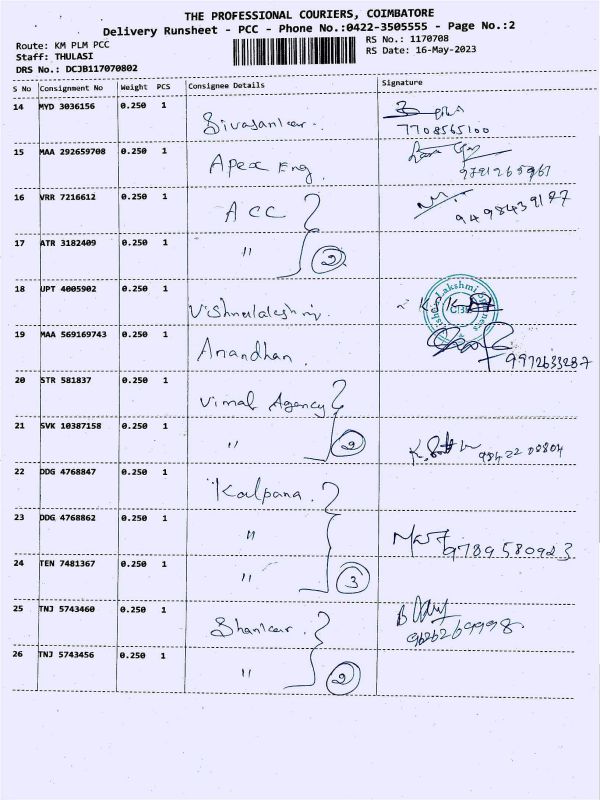 THE PROFESSIONAL COURIERS, COIMBATORE
Delivery Runsheet - PCC - Phone No.:0422-3505555 - Page No.:2
Route: KM PLM PCC
RS No.: 1170708
Staff: THULASI
RS Date: 16-May-2023
DRS No.: DCJB117070802
S No Consignment No Weight PCS Consignee Details Signature
14 MYD 3036156 0.250 1
Sivasankar.
7708565100
15 MAA 292659708 0.250 1
Apex Eng.
9791265967
16 VRR 7216612 0.250 1
ACC
9498439197
17 ATR 3182409 0.250 1
" 2
18 UPT 4005902 0.250 1
19 MAA 569169743 0.250 1
Anandhan.
9972633287
20 STR 581837 0.250 1
Vimal Agency
21 SVK 10387158 0.250 1
" 2
22 DDG 4768847 0.250 1
Kalpana.
23 DDG 4768862 0.250 1
"
9789580923
24 TEN 7481367 0.250 1
" 3
25 TNJ 5743460 0.250 1
Shankar.
26 TNJ 5743456 0.250 1
" 2